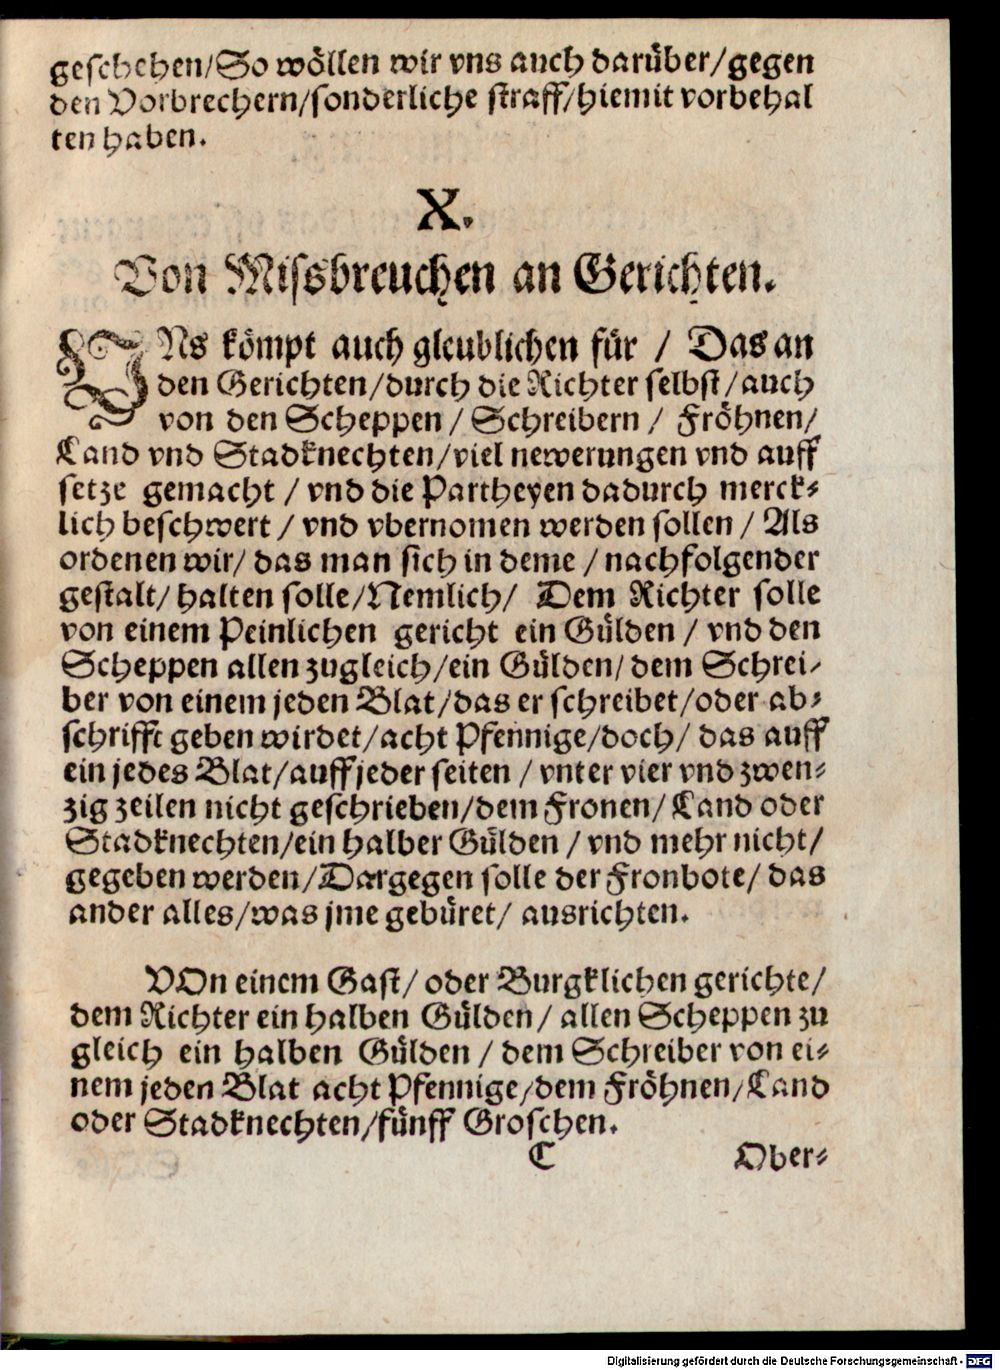 geschehen/So wöllen wir vns auch darüber/gegen
den Vorbrechern/sonderliche straff/hiemit vorbehal
ten haben.
X.
Von Missbreuchen an Gerichten.
VNs kömpt auch gleublichen für / Das an
den Gerichten/durch die Richter selbst/auch
von den Scheppen / Schreibern / Fröhnen/
Land vnd Stadknechten/viel newerungen vnd auff
setze gemacht / vnd die Partheyen dadurch merck-
lich beschwert / vnd vbernomen werden sollen / Als
ordenen wir/ das man sich in deme / nachfolgender
gestalt/ halten solle/Nemlich/ Dem Richter solle
von einem Peinlichen gericht ein Gülden / vnd den
Scheppen allen zugleich/ein Gülden/ dem Schrei-
ber von einem jeden Blat/das er schreibet/oder ab-
schrifft geben wirdet/acht Pfennige/doch/ das auff
ein jedes Blat/auff jeder seiten / vnter vier vnd zwen-
zig zeilen nicht geschrieben/dem Fronen/ Land oder
Stadknechten/ein halber Gülden / vnd mehr nicht/
gegeben werden/Dargegen solle der Fronbote/ das
ander alles/was jme gebüret/ ausrichten.
VOn einem Gast/ oder Burgklichen gerichte/
dem Richter ein halben Gülden/ allen Scheppen zu
gleich ein halben Gülden / dem Schreiber von ei-
nem jeden Blat acht Pfennige/dem Fröhnen/Land
oder Stadknechten/fünff Groschen.
C Ober-
Digitalisierung gefördert durch die Deutsche Forschungsgemeinschaft - DFG